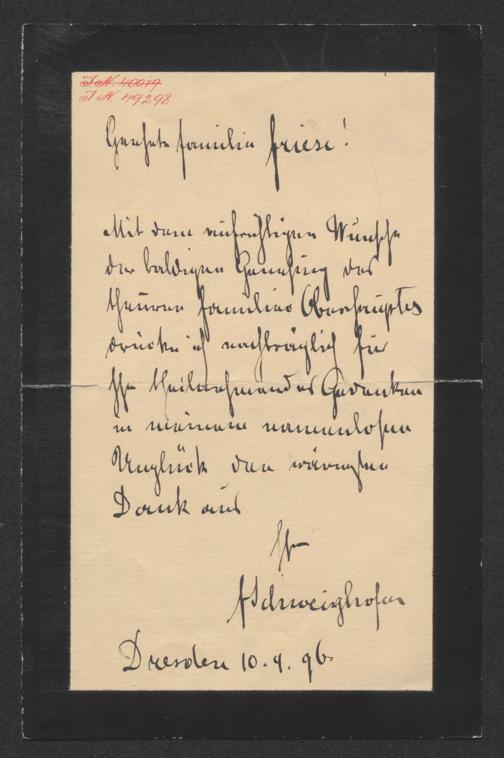 I N. 40079
I N. 49298
Geehrte Familie Friese!
Mit dem aufrichtigen Wunsche
der baldigen Genesung des
theuren Familien Oberhauptes
drücke ich nachträglich für
Ihr theilnehmendes Gedenken
in meinem namenlosen
Unglück den wärmsten
Dank aus
Ihr
FSchweighofer
Dresden 10.4.96.